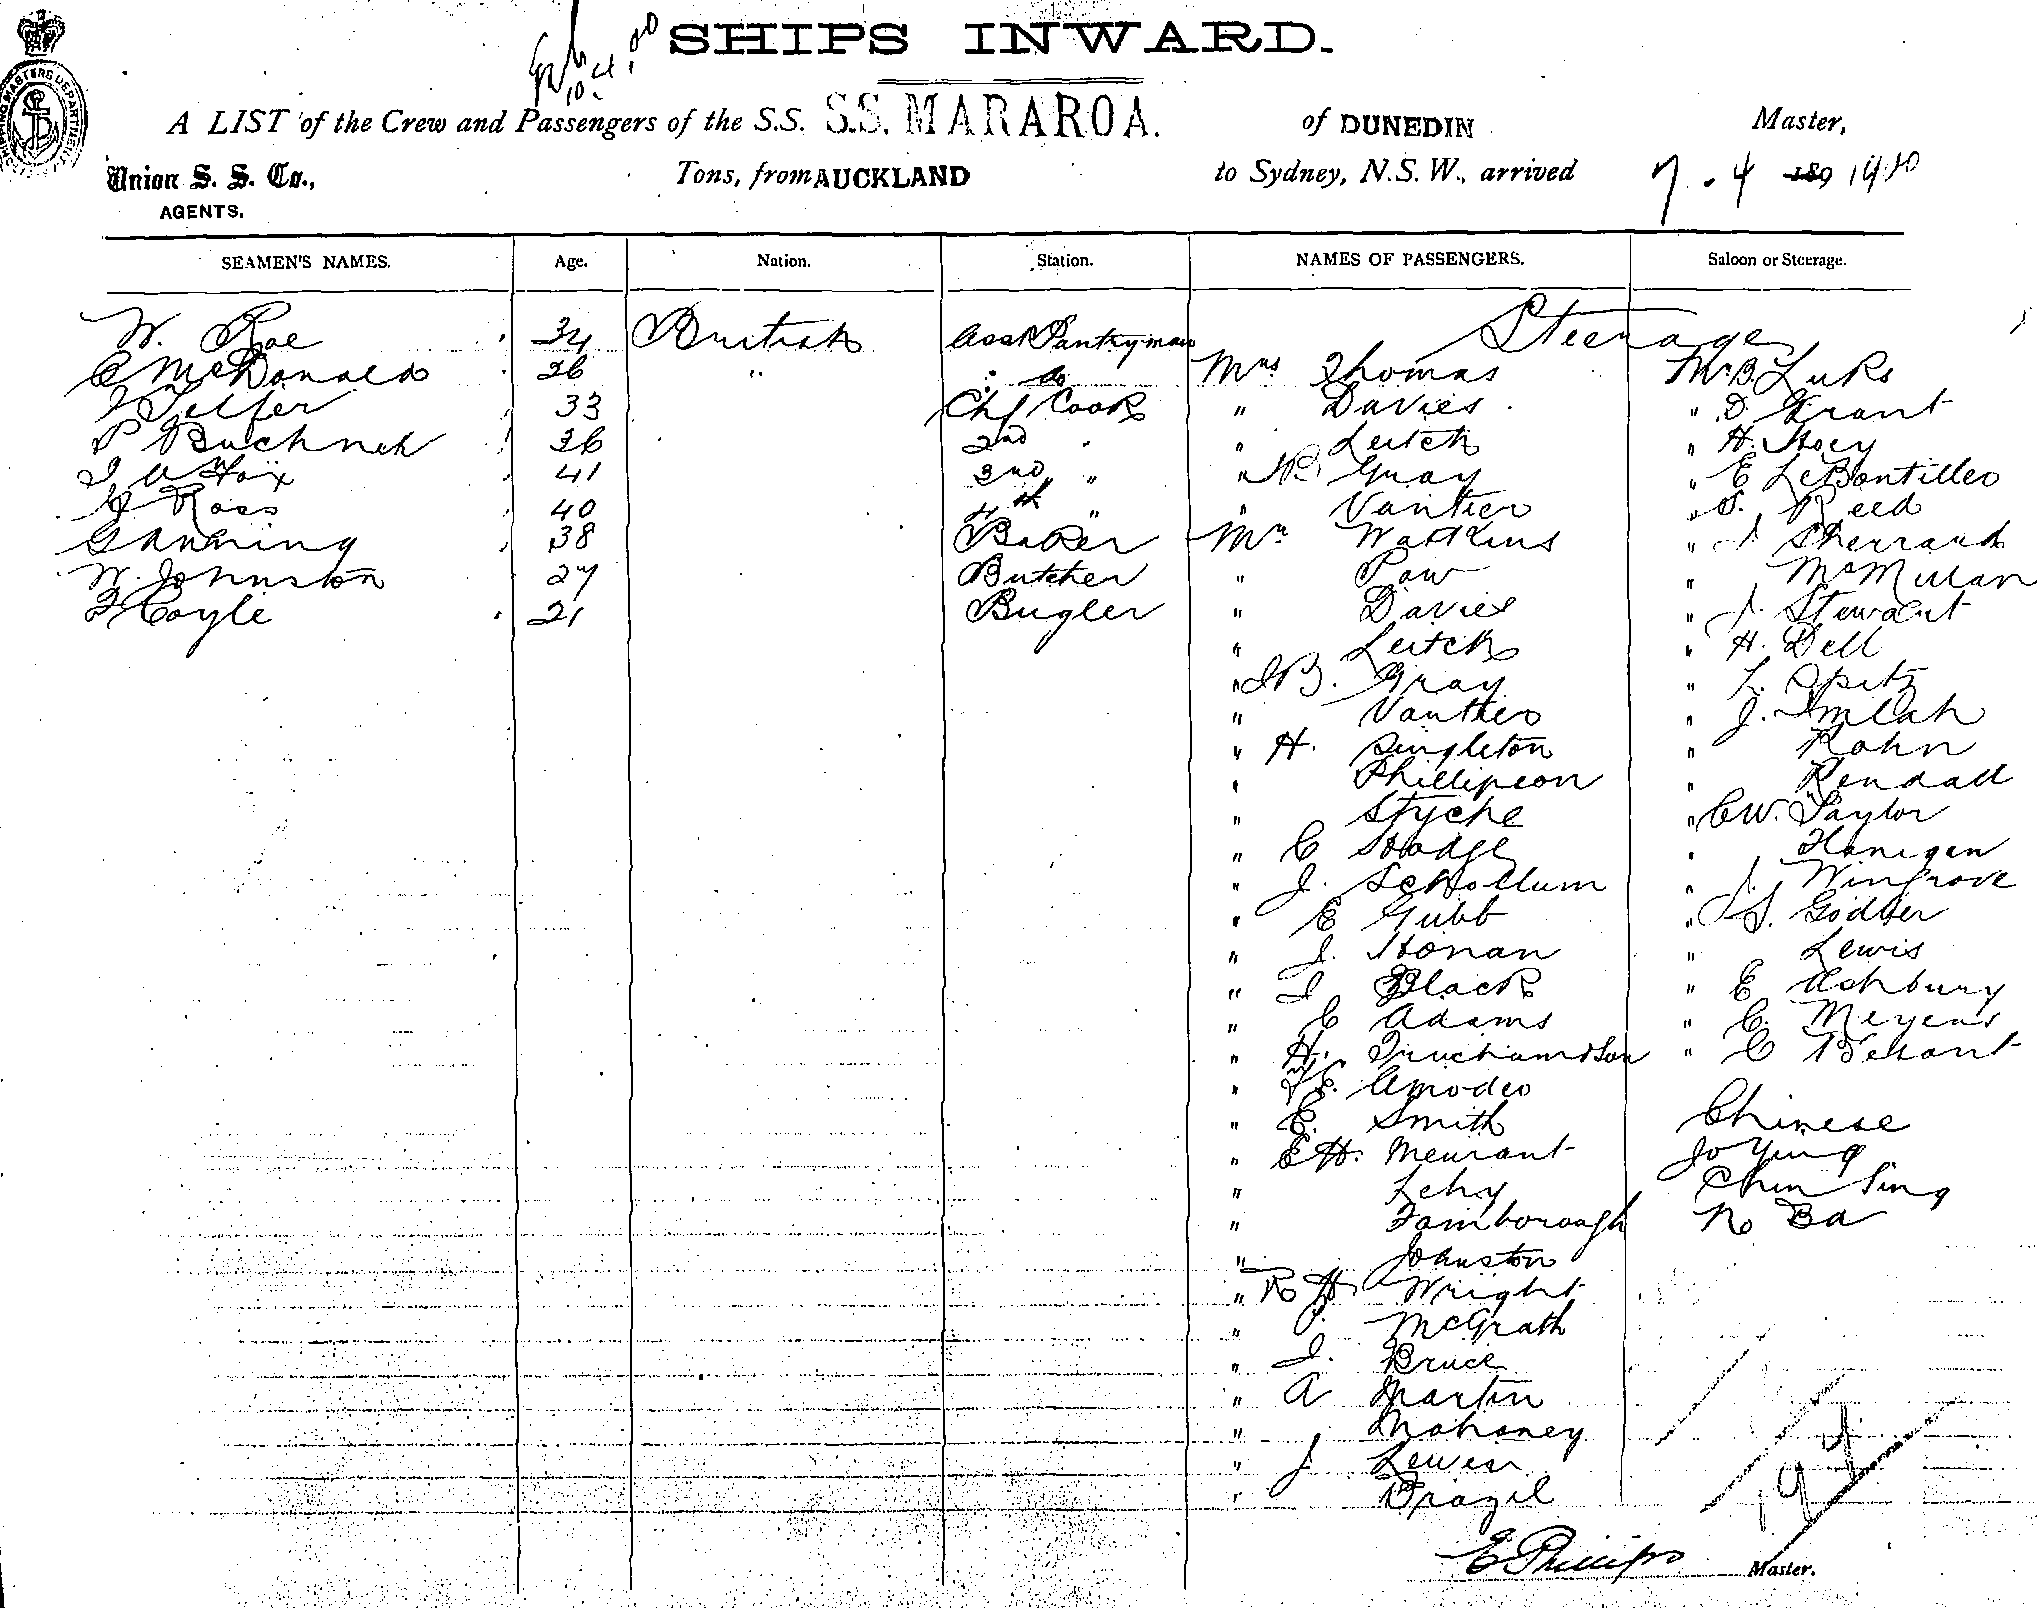 SHIPS INWARD.
A LIST of the Crew and Passengers of the S.S. S.S. MARAROA. of DUNEDIN Master,
Union S. S. Co., Tons, from AUCKLAND to Sydney, N.S.W., arrived 7.4 189 1910
AGENTS.
SEAMEN'S NAMES. Age. Nation. Station. NAMES OF PASSENGERS. Saloon or Steerage.
W. Roe 34 British Asst Pantryman Steerage
C McDonald 26 " do Mrs Thomas Mr B. Luks
Telfer 33 Chf Cook " Davies " D. Grant
P Buchnek 36 2nd " " Leitch " H. Hoey
41 3nd " " Gray " E LeBontiller
J Ross 40 4th " " Vantier " S. Reed
G Anning 38 Baker Mr Watkins " J. Sherrard
W. Johnston 27 Butcher " Paw " McMillan
F Coyle 21 Bugler " Davies " J. Stewart
" Leitch " H. Dell
" J B. Gray " L. Opitz
" Vantier " J. Imlah
" H. Singleton " Rahn
" Phillipson " Rendall
" Styche " C W. Taylor
" C Hodge " Hanigan
" J. Schollum " J. Wingrove
" E Gubb " Godber
" J. Honan " Lewis
" J Black " E Ashbury
" C Adams " C. Meyers
" H. " C Besant
" Amodeo
" E. Smith Chinese
" E H. Meurant Jo Ying
" Lehy Chin Sing
" Tamborough No Ba
" Johnston
" R H Wright
" P. McGrath
" J. Bruce
" A Martin
" Mahoney
" J Lewer
" Brazil
E Phillips Master.